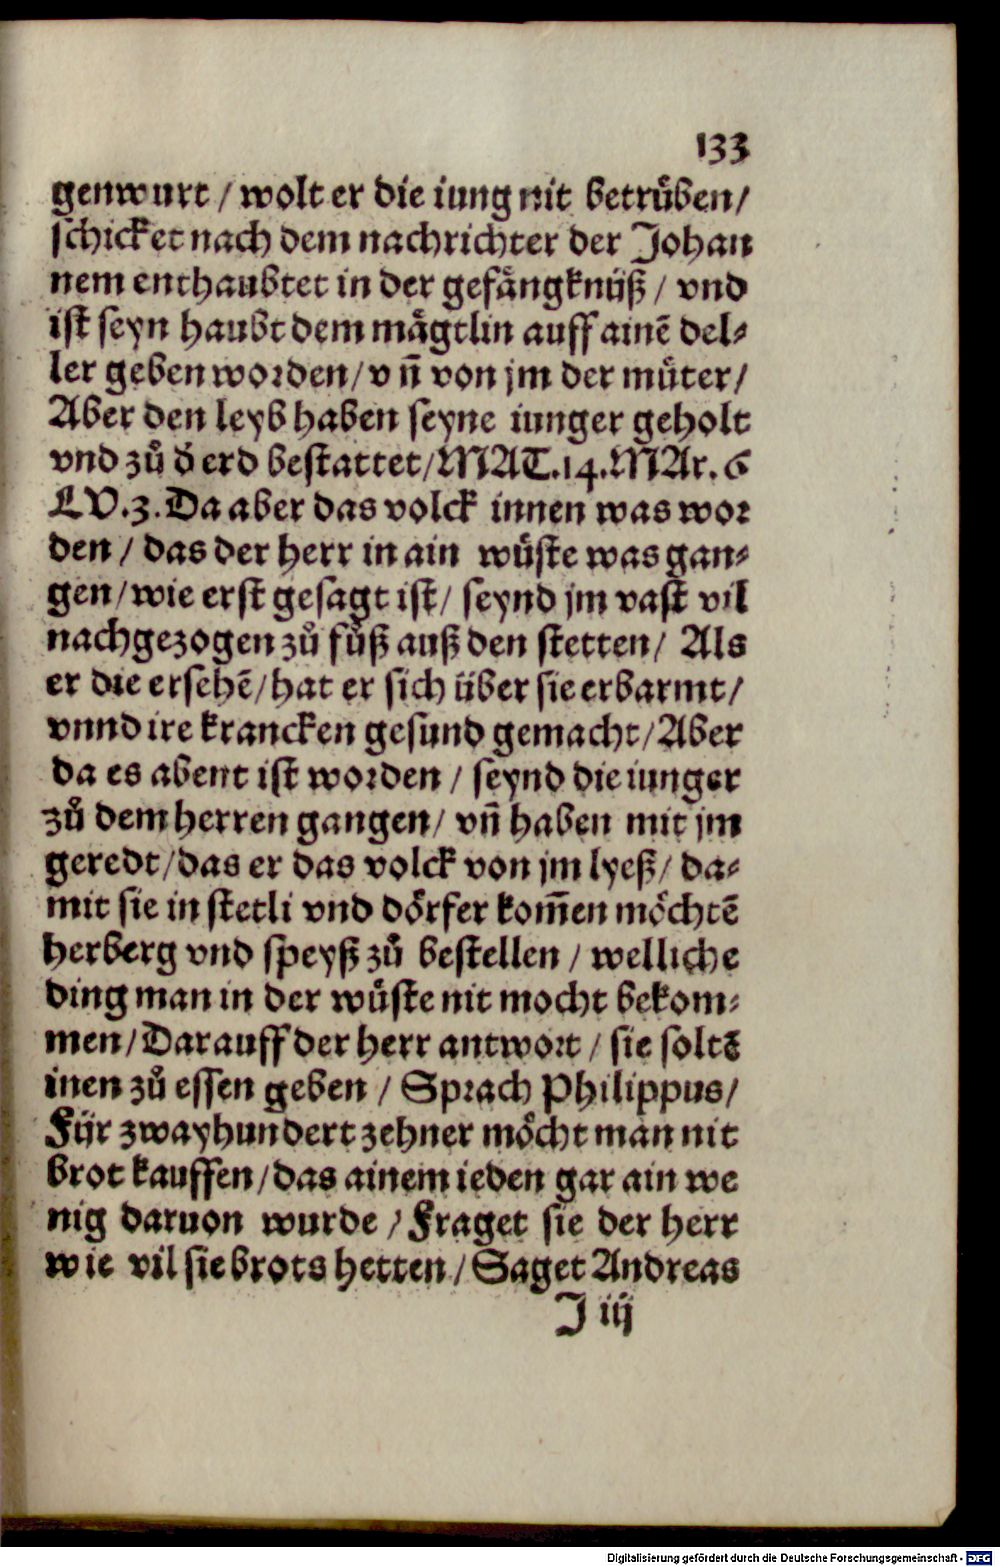 133
genwurt / wolt er die iung nit betruͤben/
schicket nach dem nachrichter der Johan
nem enthaubtet in der gefaͤngknüß / vnd
ist seyn haubt dem maͤgtlin auff ainē del⸗
ler geben worden/ vñ von jm der muͤter/
Aber den leyb haben seyne iunger geholt
vnd zuͦ d̓ erd bestattet/MAT.14.MAr.6
LV.3. Da aber das volck innen was wor
den / das der herr in ain wuͤste was gan⸗
gen/wie erst gesagt ist/ seynd jm vast vil
nachgezogen zuͦ fuͦß auß den stetten/ Als
er die ersehē/hat er sich über sie erbarmt/
vnnd ire krancken gesund gemacht/Aber
da es abent ist worden / seynd die iunger
zuͦ dem herren gangen/ vñ haben mit jm
geredt/das er das volck von jm lyeß/ da⸗
mit sie in stetli vnd doͤrfer kom̄en moͤchtē
herberg vnd speyß zuͦ bestellen / welliche
ding man in der wuͤste nit mocht bekom⸗
men/Darauff der herr antwort / sie soltē
inen zuͦ essen geben / Sprach Philippus/
Für zwayhundert zehner moͤcht man nit
brot kauffen/das ainem ieden gar ain we
nig daruon wurde / Fraget sie der herr
wie vil sie brots hetten/ Saget Andreas
J iij
Digitalisierung gefördert durch die Deutsche Forschungsgemeinschaft - DFG